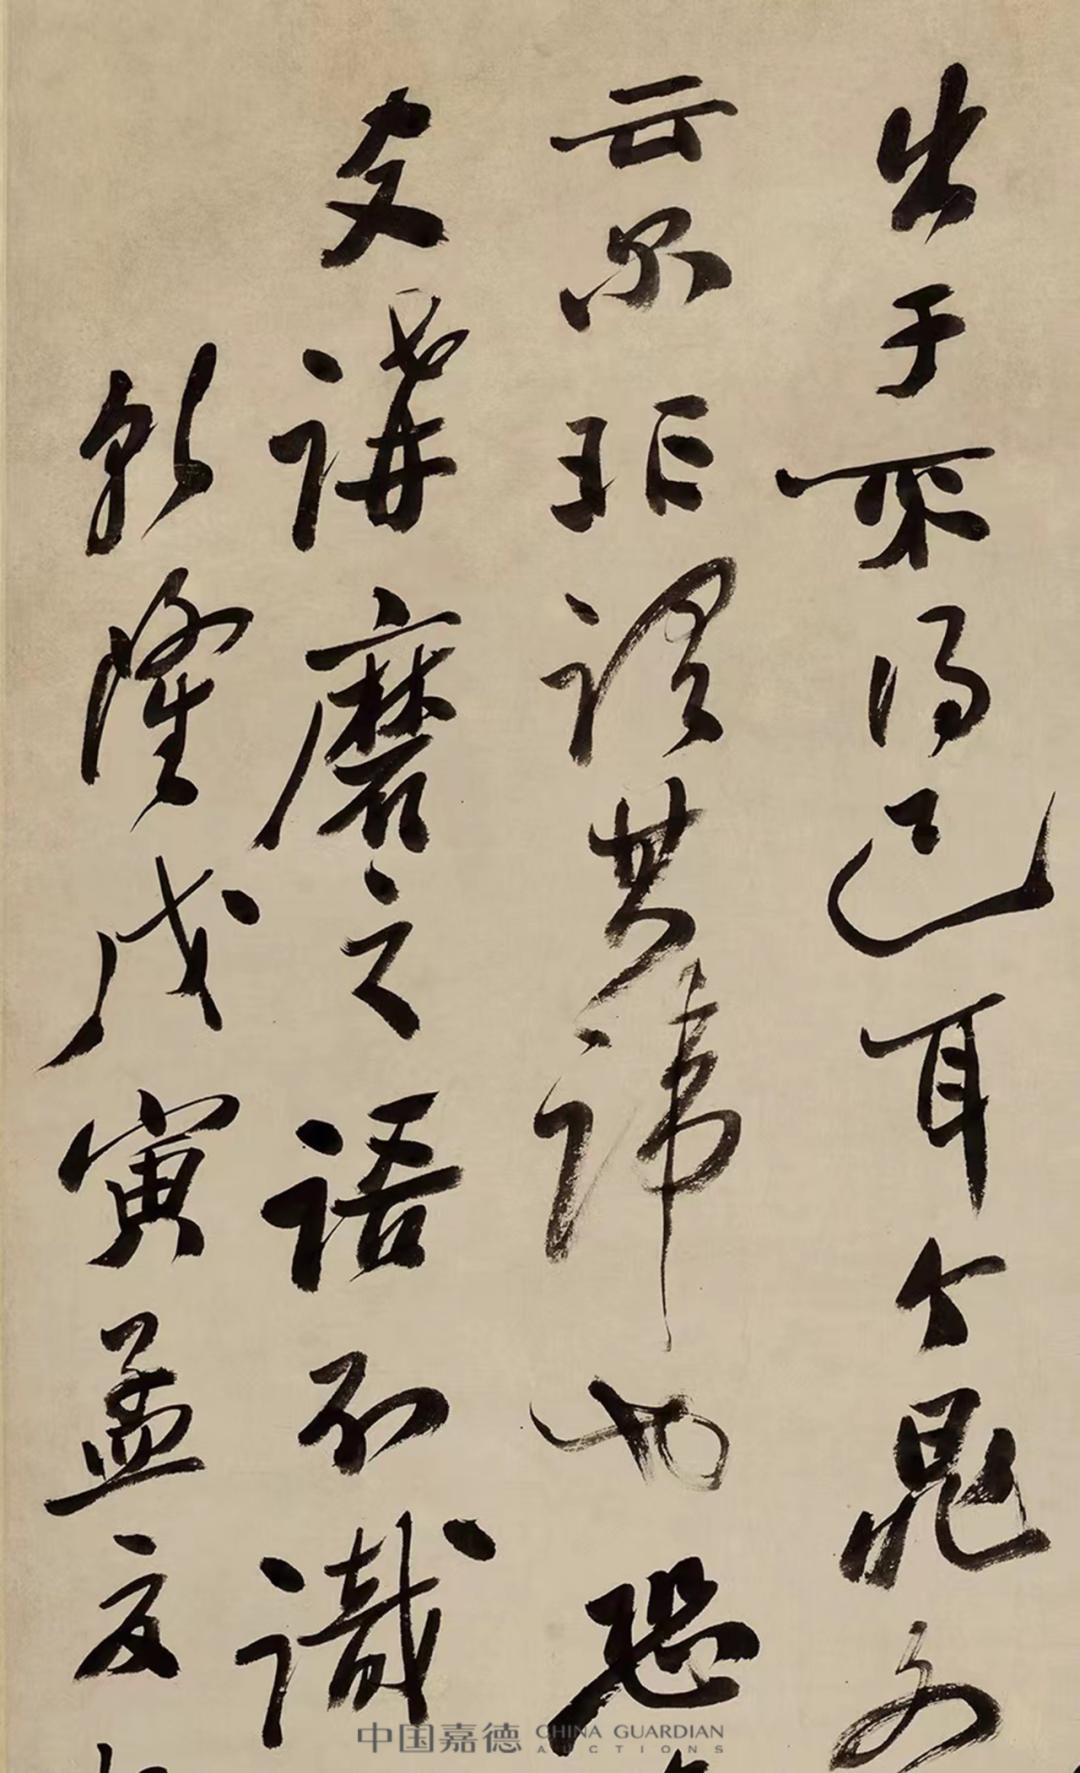 出于不得已耳今晁文
云尔非謂其諱也恐
交講磨之語不識
乾隆戊寅孟夏
中国嘉德 CHINA GUARDIAN AUCTIONS